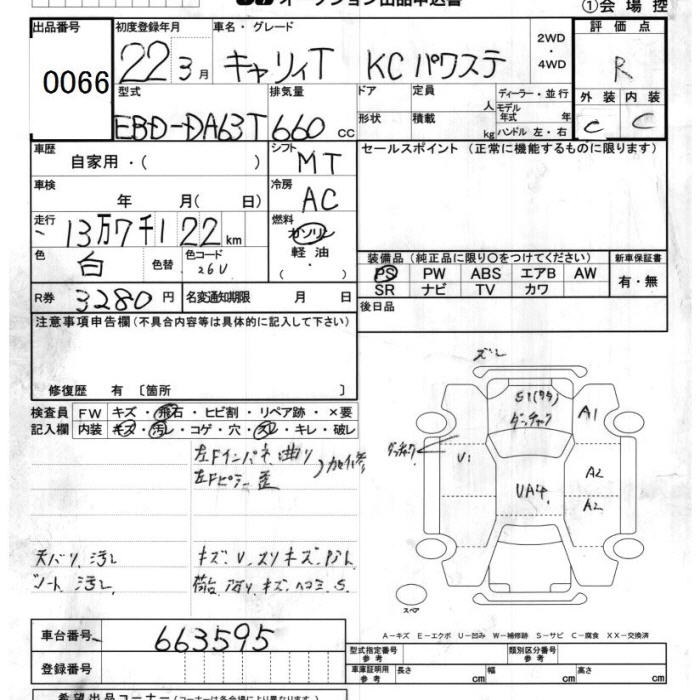 オークション出品申込書
①会場控
出品番号 0066
初度登録年月 22 3月
車名・グレード キャリィT KC パワステ
2WD・4WD
評価点 R
外装 C 内装 C
型式 EBD-DA63T
排気量 660 cc
ドア 形状
定員 人
積載 kg
ディーラー・並行
モデル年式 年
ハンドル 左・右
車歴 自家用・( )
シフト MT
セールスポイント (正常に機能するものに限ります)
車検 年 月( 日)
冷房 AC
走行 13万7千122km
燃料 ガソリン・軽油・( )
色 白 色替 色コード 26U
装備品 (純正品に限り○をつけてください)
新車保証書 有・無
PS PW ABS エアB AW
SR ナビ TV カワ
R券 3280円
名変通知期限 月 日
後日品
注意事項申告欄 (不具合内容等は具体的に記入して下さい)
修復歴 有 [箇所 ]
検査員記入欄
FW キズ・飛石・ヒビ割・リペア跡・×要
内装 キズ・汚レ・コゲ・穴・スレ・キレ・破レ
左Fインパネ曲り
左Fピラー歪
加修
天バリ汚レ
シート汚レ
キズ V. スリキズ
荷台 キズ. ヘコミ. S.
ズレ
S1(タタ)
ダッチャク
A1
ダッチャク
U1
A2
UA4
A2
スペア
A-キズ E-エクボ U-凹み W-補修跡 S-サビ C-腐食 XX-交換済
車台番号 663595
登録番号
型式指定番号 参考
類別区分番号 参考
車庫証明用 参考 長さ cm 幅 cm 高さ cm
希望出品コーナー(コーナーは各会場により異なります)